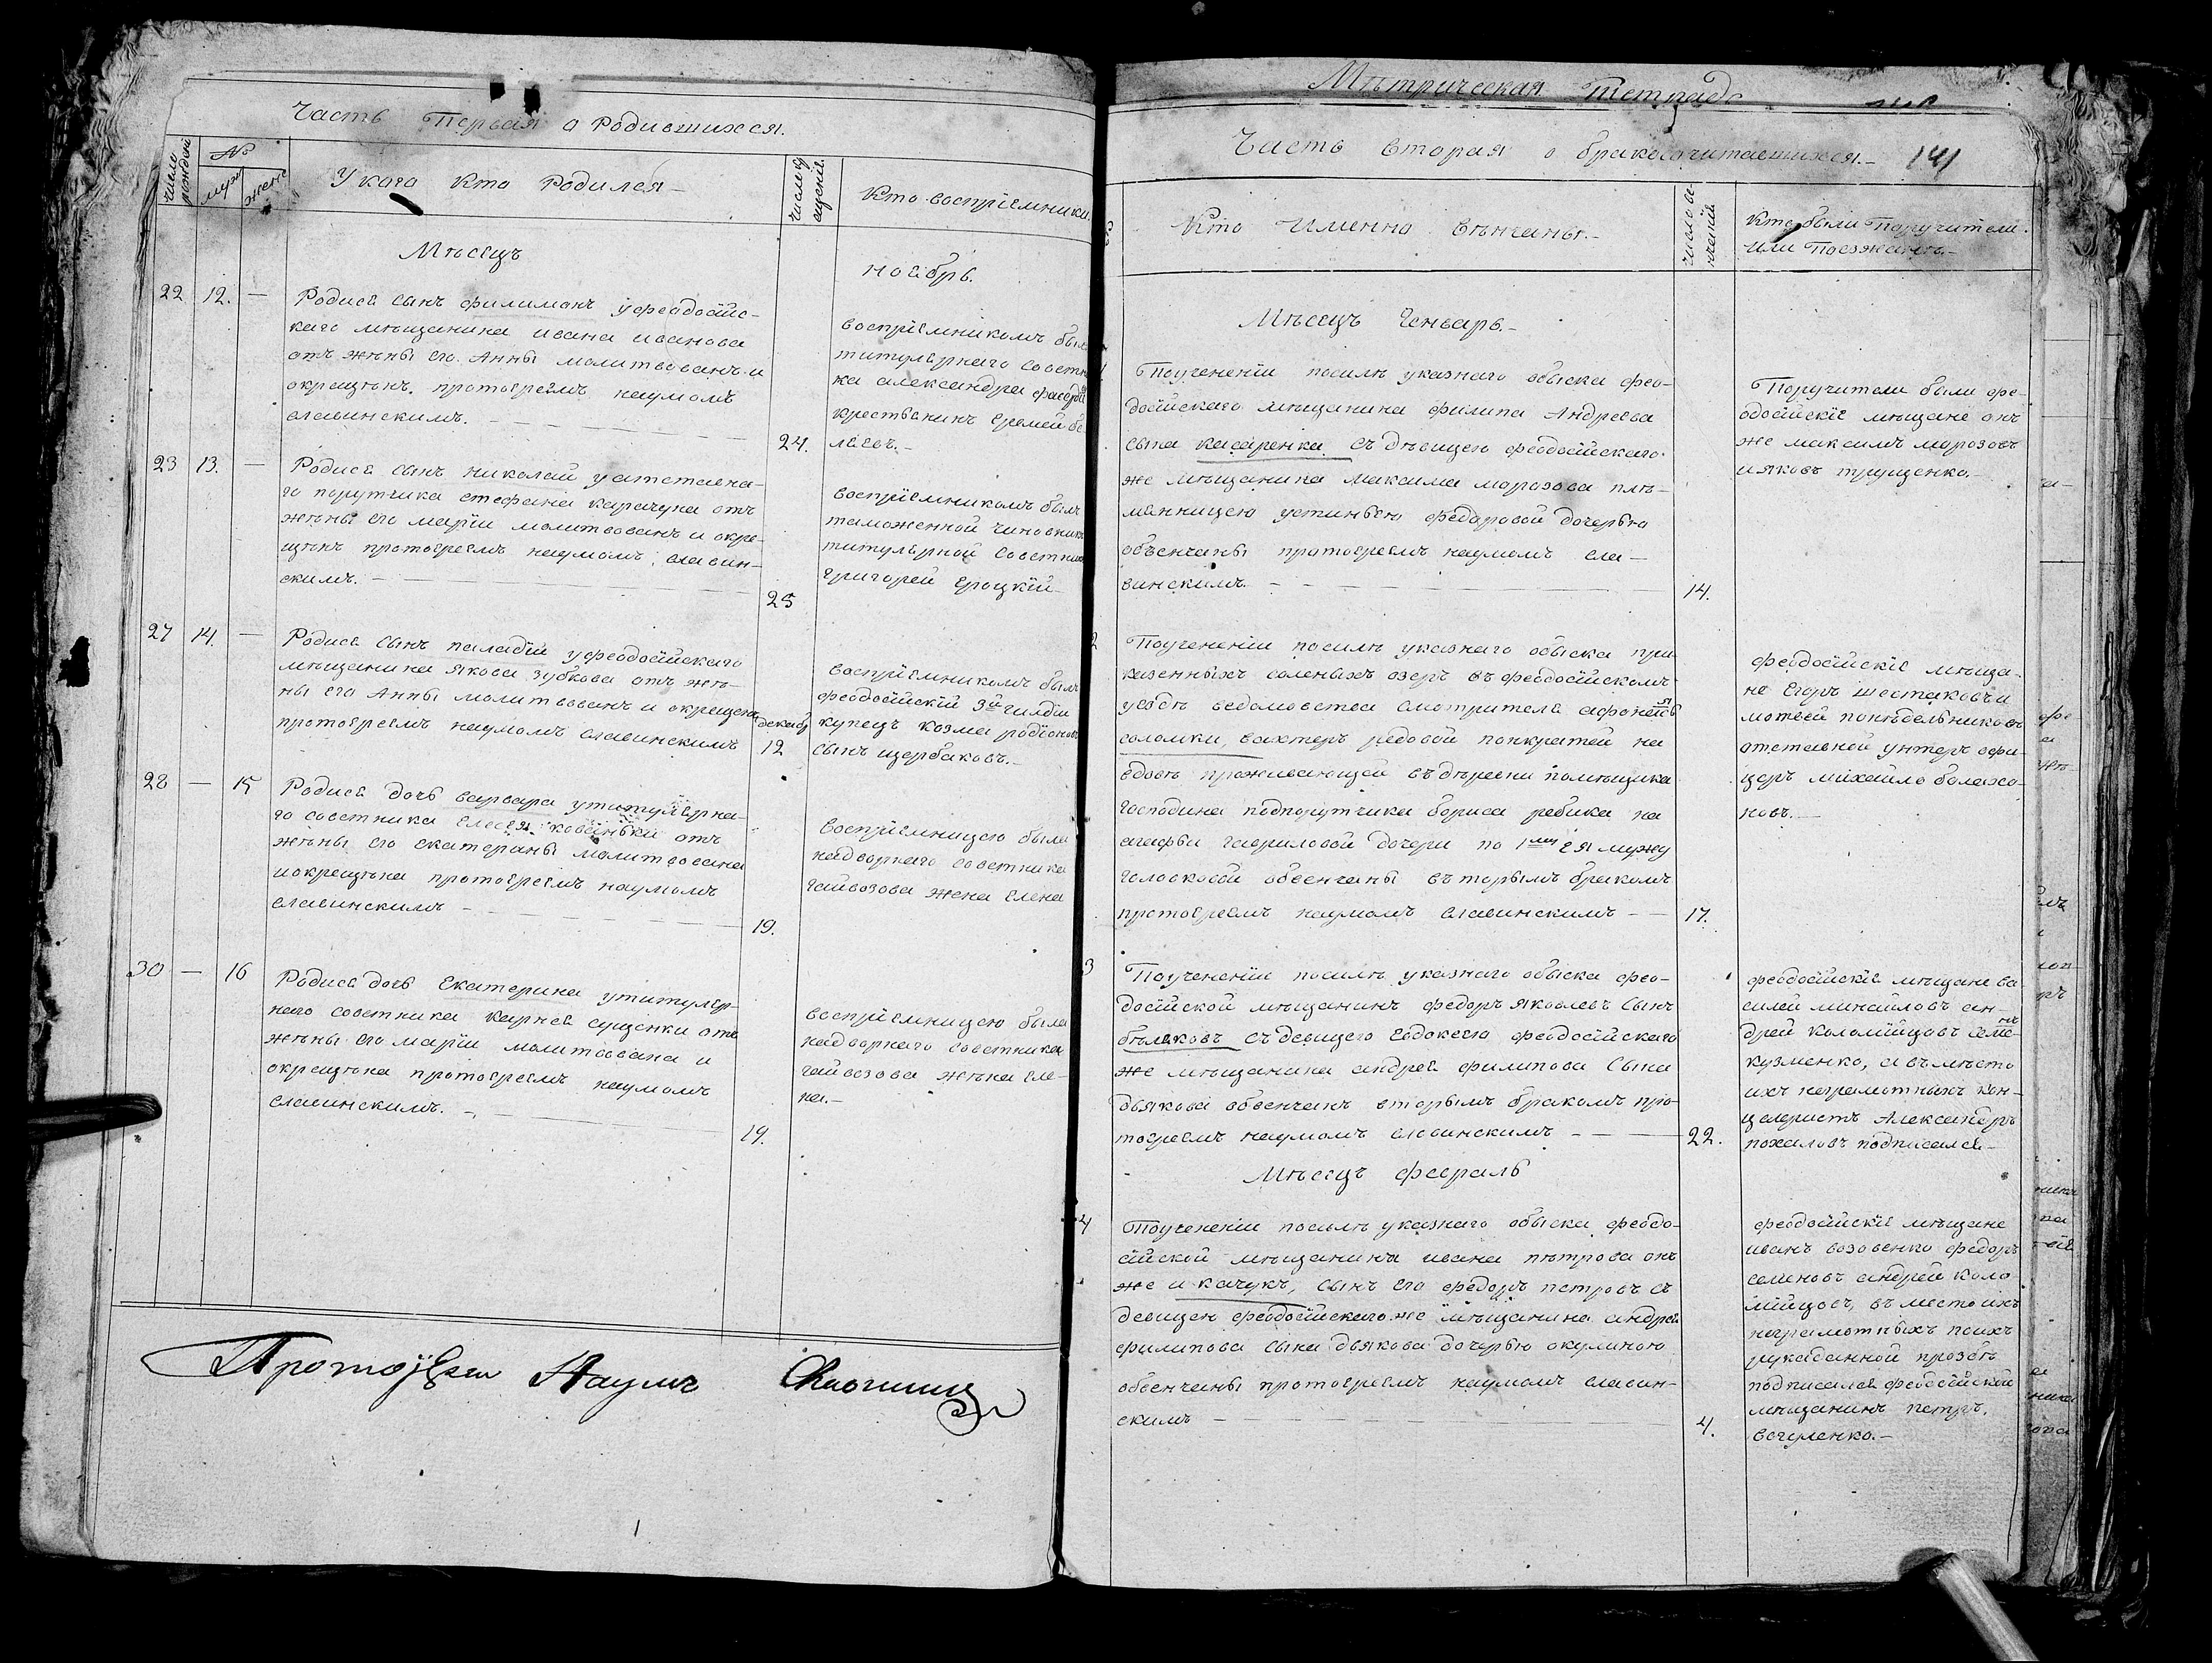 Часть Первая о Родившихся.
число рождей
№
муж
женс
У кого кто Родился
число крещей
Кто восприемники.
Мѣсецъ
ноябрь.
22 12. —
Родися сынъ филимонъ у феодосійс-
каго мѣщанина ивана иванова
отъ жѣны его Анны молитвованъ и
окрещѣнъ протоереемъ наумомъ
славинскимъ.
24.
восприемникомъ былъ
титулярнаго советни
ка александра
крестьянинъ Еремей
23 13. —
Родися сынъ николай у отставна-
го порутчика стефана карачуна отъ
жѣны его маріи молитвованъ и окре-
щѣнъ протоереемъ наумомъ славин-
скимъ.
25
восприемникомъ былъ
таможенной чиновникъ
титулярной советникъ
григорей Ероцкій
27 14. —
Родися сынъ паладій у феодосійскаго
мѣщанина якова зубкова отъ жѣ-
ны его Анны молитвованъ и окрещенъ
протоереемъ наумомъ славинскимъ
декабр
12
восприемникомъ былъ
феодосійскій 3й гилдіи
купецъ козма родіоновъ
сынъ щербаковъ.
28 — 15
Родися дочь варвара у титулярна-
го советника елесея кованьки отъ
жѣны его екатерины молитвована
и окрещѣна протоереемъ наумомъ
славинскимъ
19.
восприемницею была
надворнаго советника
гайвозова жена елена
30 — 16
Родися дочь Екатерина у титуляр-
наго советника карнея сущенки отъ
жѣны его маріи молитвована и
окрещѣна протоереемъ наумомъ
славинскимъ.
19.
восприемницею была
надворнаго советника
гайвозова жѣна еле-
на.
Протоіерей Наумъ Славинский
Мѣтрическая Тетрадь
Часть вторая о бракосочитавшихся. 141
Кто именно вѣнчаны.
число венчаній
Кто были Поручители
или Поезжанѣ.
Мѣсецъ Генварь.
1
По ученѣніи посилѣ указнаго обыска фео-
досійскаго мѣщанина филипа Андреева
сына касаренка съ дѣвицею феодосійскаго
же мѣщанина максима морозова плѣ-
мянницею устиньею федоровой дочерью
обѣнчаны протоереемъ наумомъ сла-
винскимъ
14.
Поручители были фе-
одосійскіе мѣщане онъ
же максимъ морозовъ
и яковъ трущенко.
2
По ученѣніи посилѣ указнаго обыска при
казенныхъ соленыхъ озеръ въ феодосійскомъ
уездѣ ведомовства смотрителя афонасья
соломки, вахтеръ редовой понкратей на
вдовѣ проживающей въ дѣревни помѣщика
Господина подпорутчика бориса ребика на
агафьи гавриловой дочери по 1му ея мужу
голосковой обвенчаны въторымъ бракомъ
протоереемъ наумомъ славинскимъ
17.
феодосійскіе мѣща-
не Егоръ шостаковъ и
мотвей понѣдельниковъ
отставной унтеръ офи-
церъ михайло болахо-
новъ.
3
По ученѣніи посилѣ указнаго обыска фео-
досійской мѣщанинъ федоръ яковлевъ сынъ
бѣляковъ съ девицего Евдокеею феодосійскаго
же мѣщанина андрея филипова сына
дьякова обвенчанъ вторымъ бракомъ про-
тоереемъ наумомъ славинскимъ
22.
феодосійскіе мѣщане ва
силей михайловъ ан-
дрей коломійцовъ семенъ
кузменко, а въмѣсто
ихъ награмотныхъ кан-
целяристъ Александръ
похаловъ подписался
Мѣсецъ февраль
4
По ученѣніи посилѣ указнаго обыска феодо-
сійской мѣщанина ивана пѣтрова онъ
же и качукъ, сынъ его федоръ петровъ съ
девицею феодосійскаго же мѣщанина андрея
филипова сына дьякова дочерью окулиною
обвенчаны протоереемъ наумомъ славин-
скимъ
4.
феодосійскіе мѣщане
иванъ возовенко федоръ
семеновъ андрей коло
мійцовъ, въ место ихъ
награмотныхъ поихъ
рукаданной прозбѣ
подписался феодосійской
мѣщанинъ петръ
вечуленко.